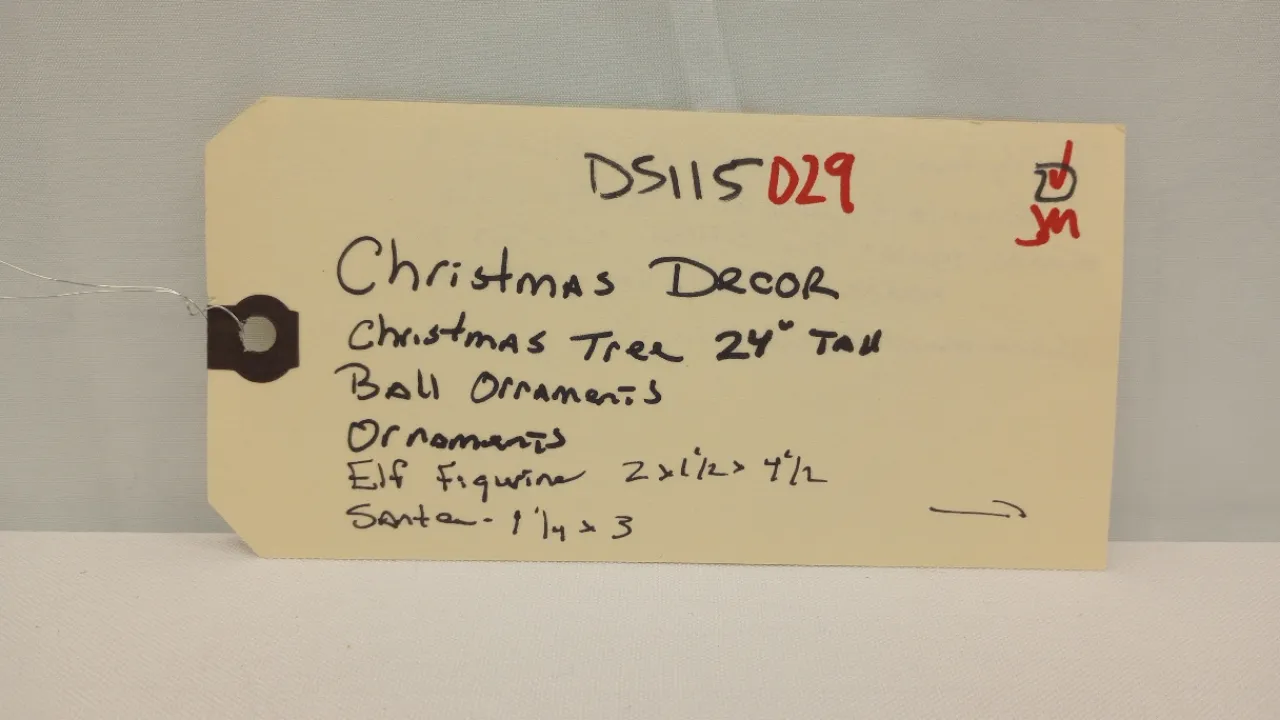 DS115D29
JM
Christmas Decor
Christmas Tree 24" Tall
Ball Ornaments
Ornaments
Elf Figurine 2 x 1 1/2 x 4 1/2
Santa - 1 1/4 x 3